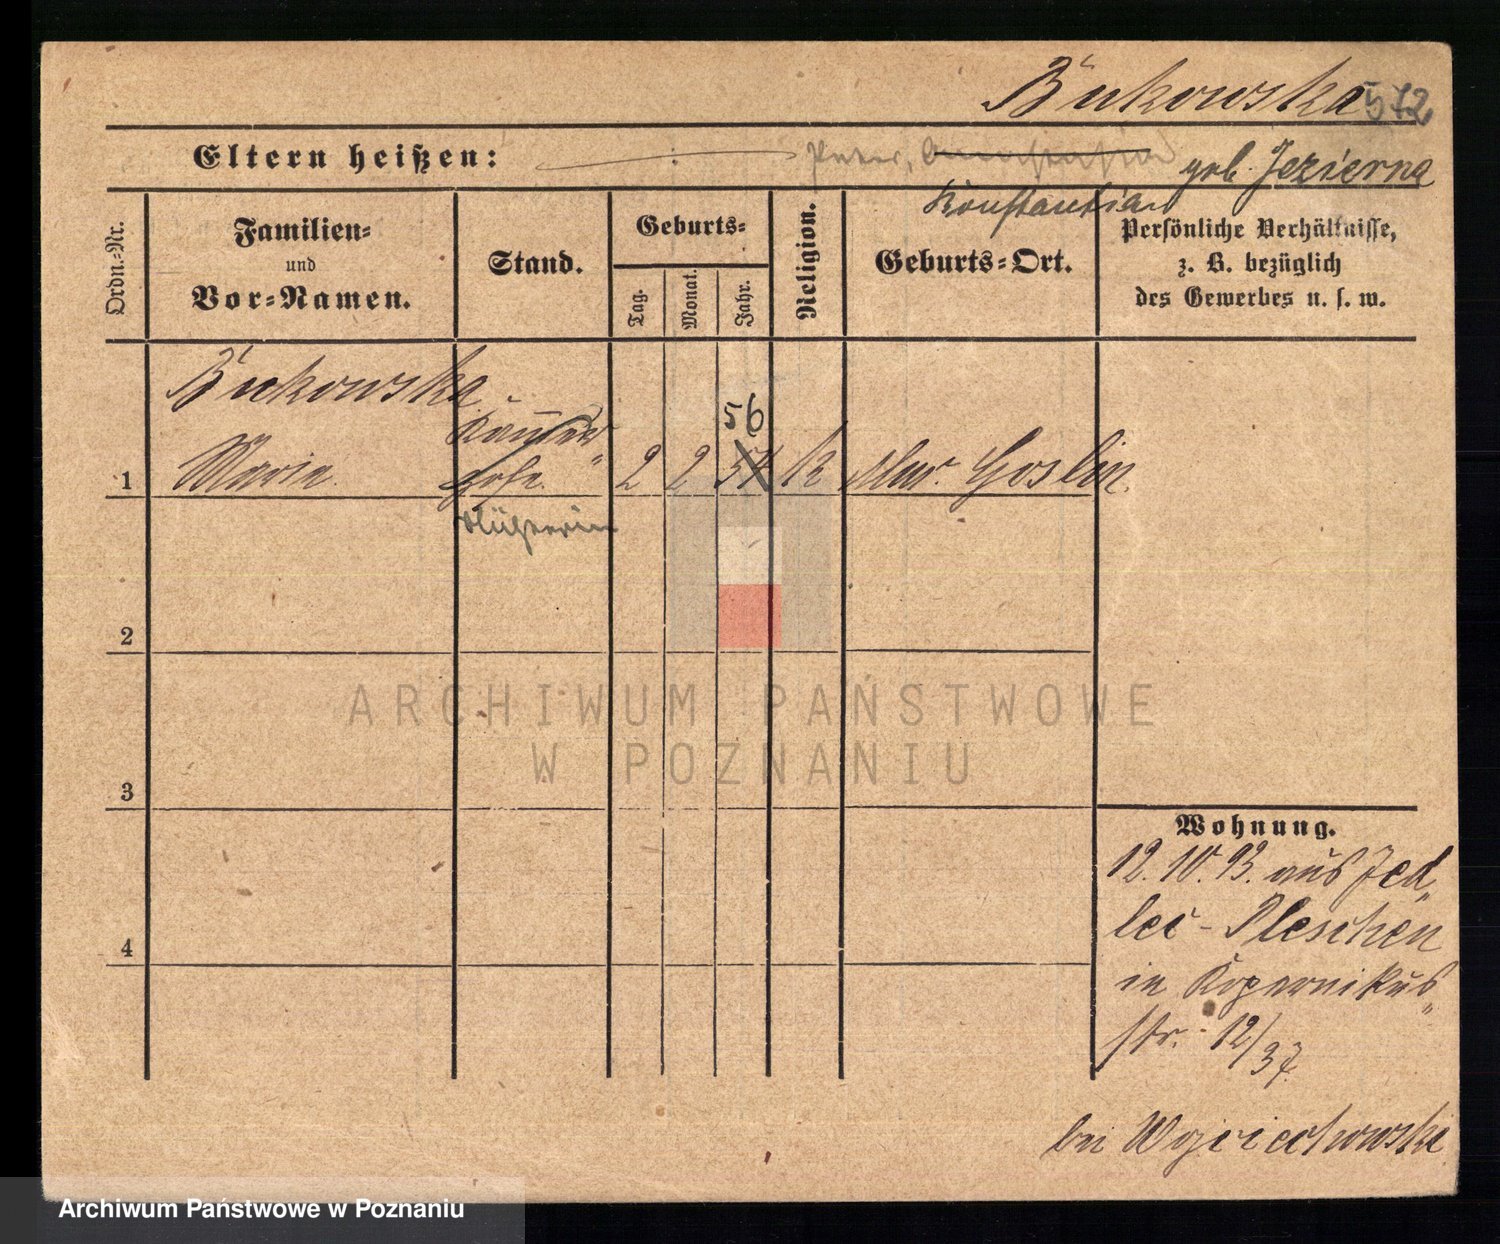 Bukowska 572
Eltern heißen: Peter, geb. Jezierna
Konstantia
Ordn.-Nr.
Familien-
und
Vor-Namen.
Stand.
Geburts-
Tag.
Monat.
Jahr.
Religion.
Geburts-Ort.
Persönliche Verhältnisse,
z. B. bezüglich
des Gewerbes u. s. w.
Bukowska
56
1 Maria 2 2 54 k Mur. Goslin
2
ARCHIWUM PAŃSTWOWE
W POZNANIU
3
Wohnung.
12.10.93. aus Jed„
lec - Pleschen
in Kopernikus„
str. 12/37
4
bei Wojciechowski
Archiwum Państwowe w Poznaniu